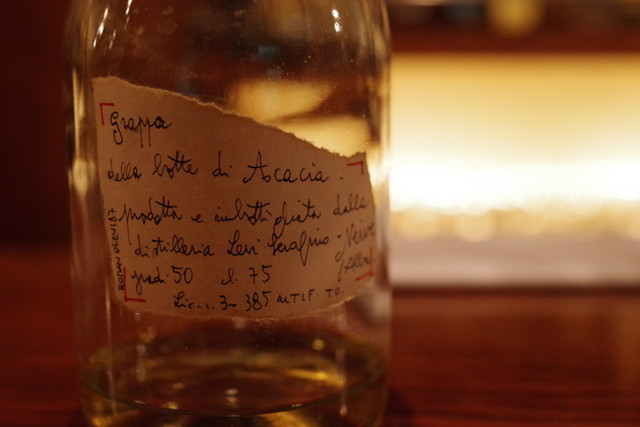 Grappa
della botte di Acacia.
prodotta e imbottigliata dalla
distilleria Levi Serafino - Neive
(Alba)
gradi 50 cl. 75
Lic. n. 3 - 385 UTIF. TO.
ROMANO LEVI 87